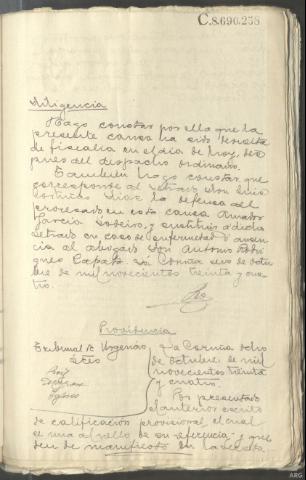 C.8.690.258
Diligencia
Hago constar por ella que la
presente causa ha sido devuelta
de fiscalia en el dia de hoy, des
pues del despacho ordinario.
Tambien hago constar que
corresponde al Letrado Don Luis
Cortiñas Diaz la defensa del
procesado en esta causa Amado
Garcia Sobeiro, y sustituirá a dicho
Letrado en caso de enfermedad o ausen
cia al abogado Don Antonio Rodri
guez Zapata. La Coruña seis de octu
bre de mil novecientos treinta y cua
tro.
Providencia
Tribunal de Urgencia
La Coruña ocho
de octubre de mil
novecientos treinta
y cuatro.
Por presentado
el anterior escrito
de calificación provisional, el cual
se una al rollo de su referencia y que
den de manifiesto en la
ARG